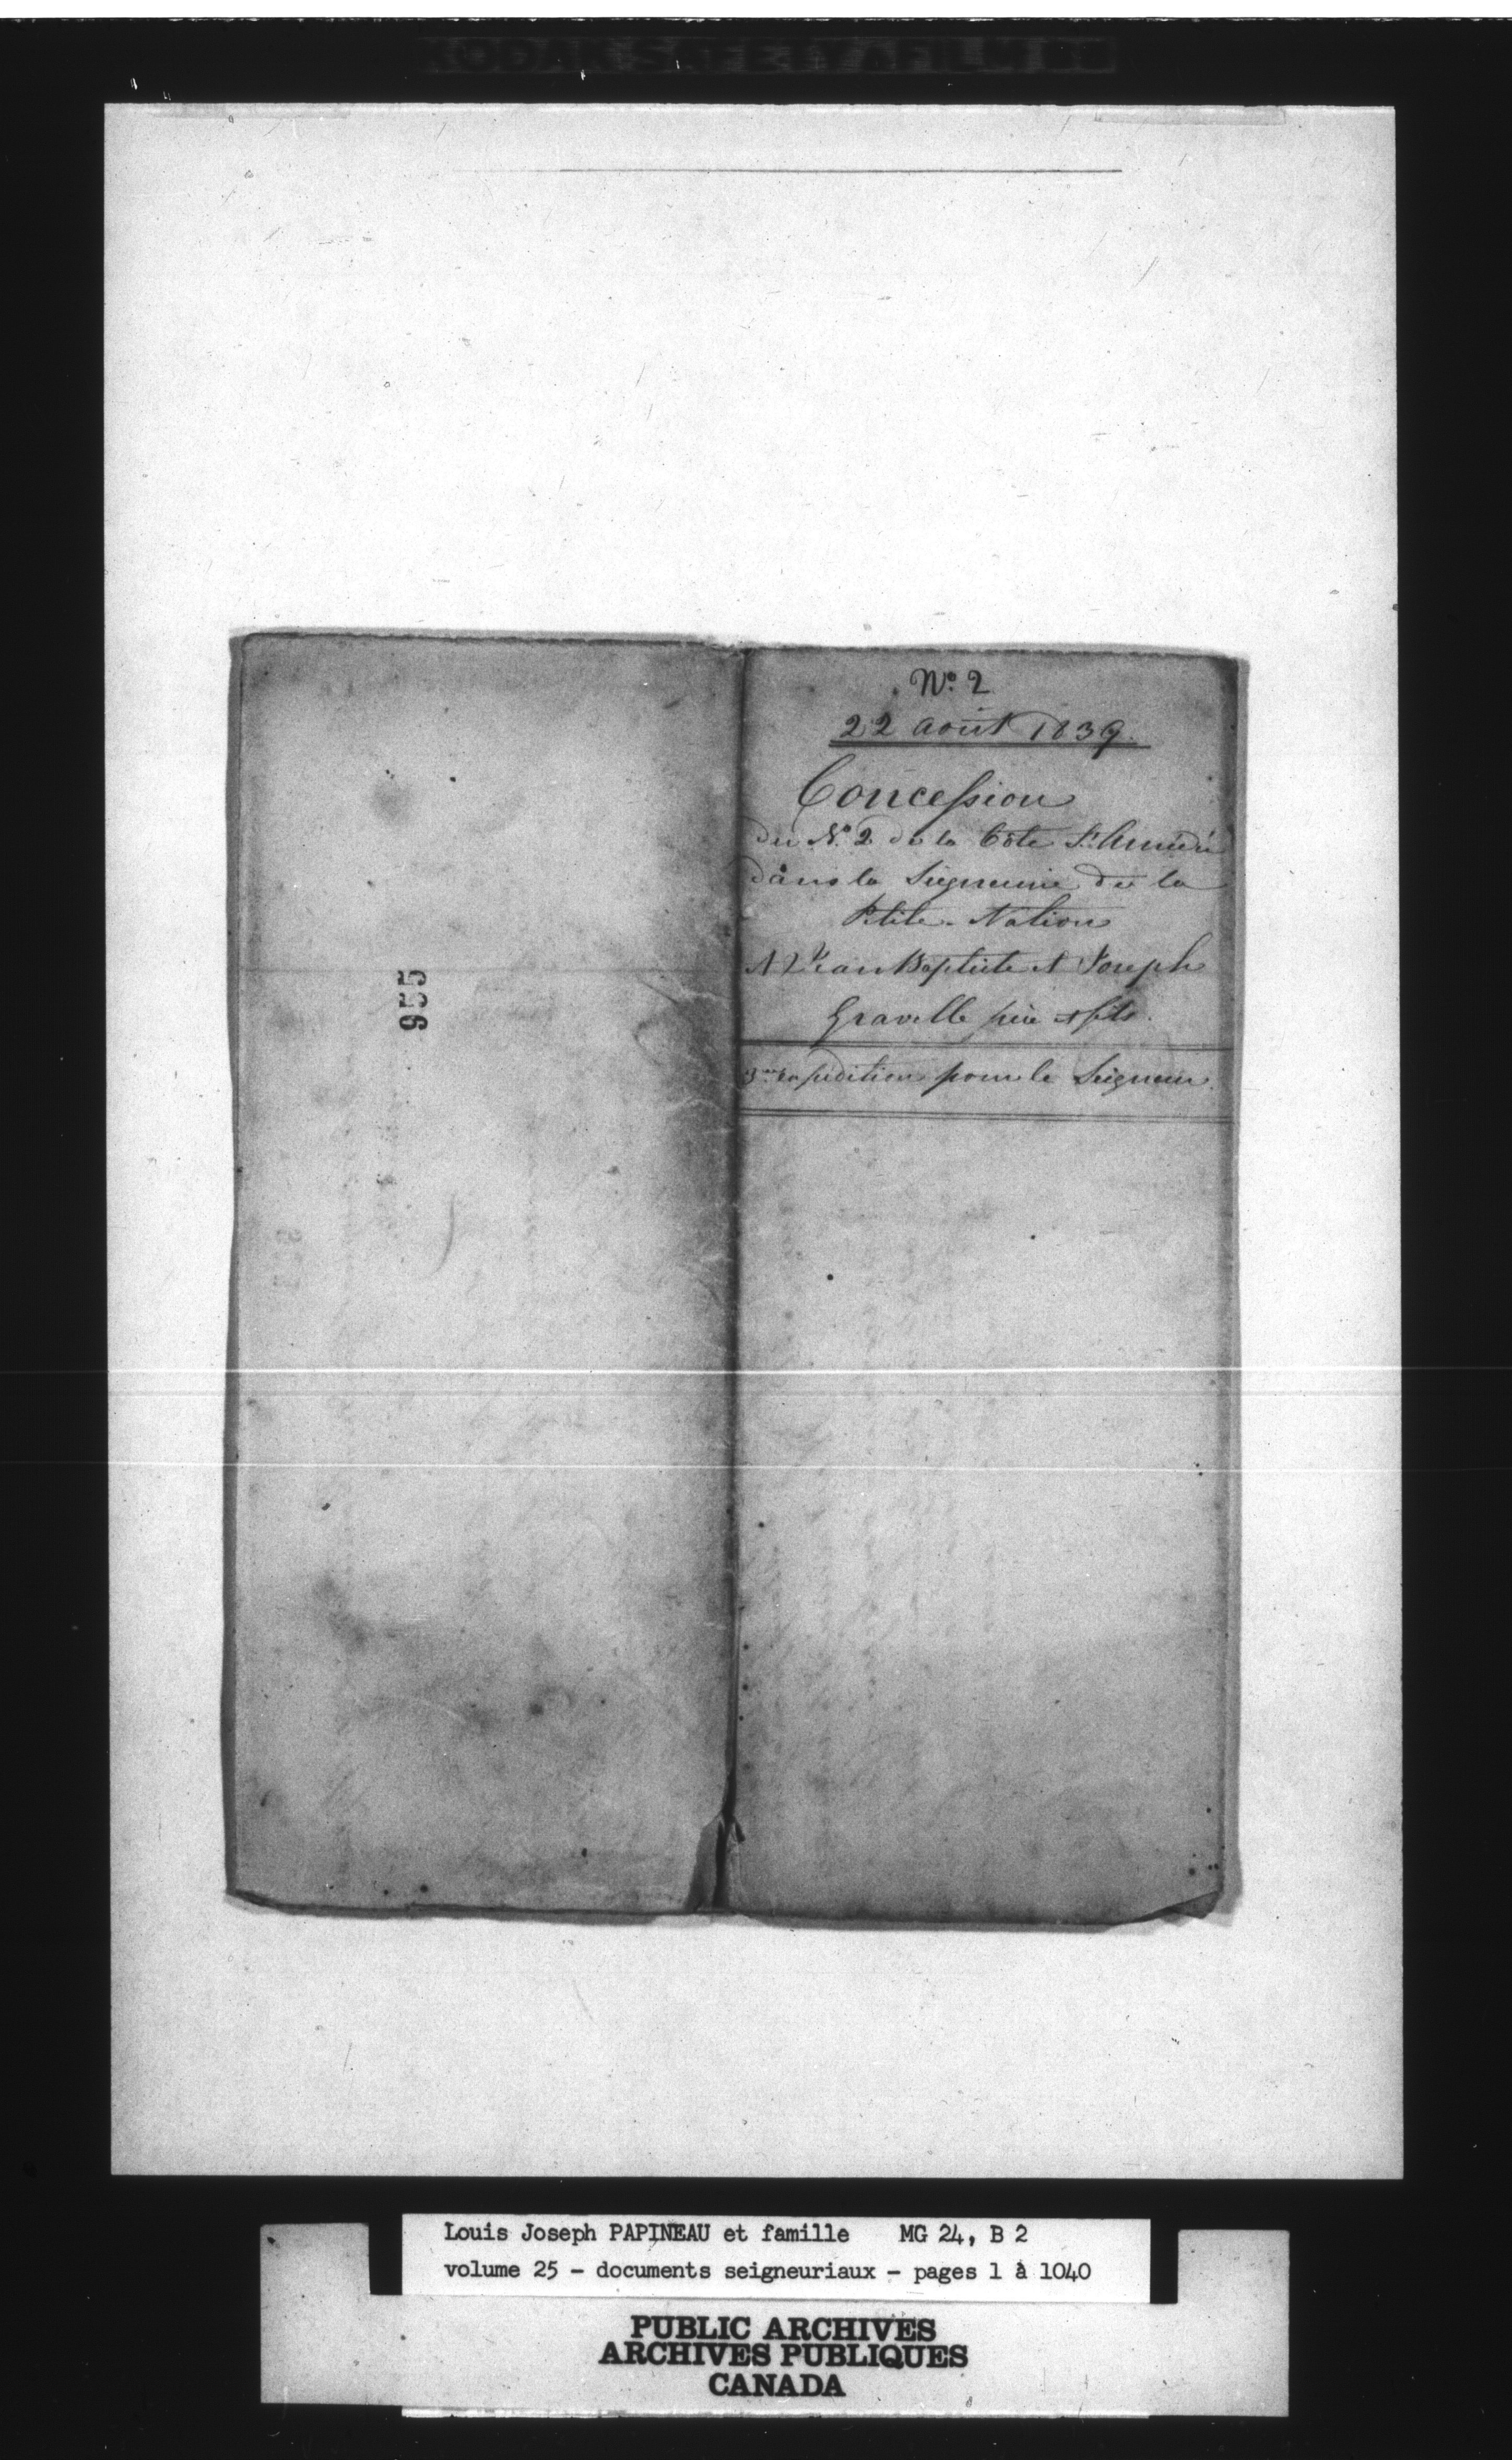 955
No. 2
22 août 1839.
Concession
du No. 2 de la Côte St. Amédée
dans la Seigneurie de la
Petite-Nation
A Jean Baptiste et Joseph
Gravelle père et fils.
3me expédition pour le Seigneur.
Louis Joseph PAPINEAU et famille MG 24, B 2
volume 25 - documents seigneuriaux - pages 1 à 1040
PUBLIC ARCHIVES
ARCHIVES PUBLIQUES
CANADA